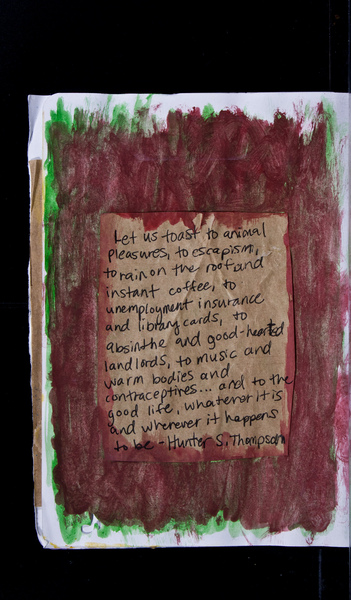 Let us toast to animal
pleasures, to escapism,
to rain on the roof and
instant coffee, to
unemployment insurance
and library cards, to
absinthe and good-hearted
landlords, to music and
warm bodies and
contraceptives... and to the
good life, whatever it is
and wherever it happens
to be - Hunter S. Thompson